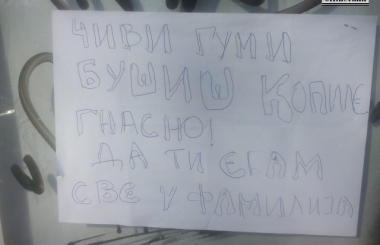 ЧИВИ ГУМИ
БУШИШ КОПИЛЕ
ГНАСНО!
ДА ТИ ЕБАМ
СВЕ У ФАМИЛИЈА